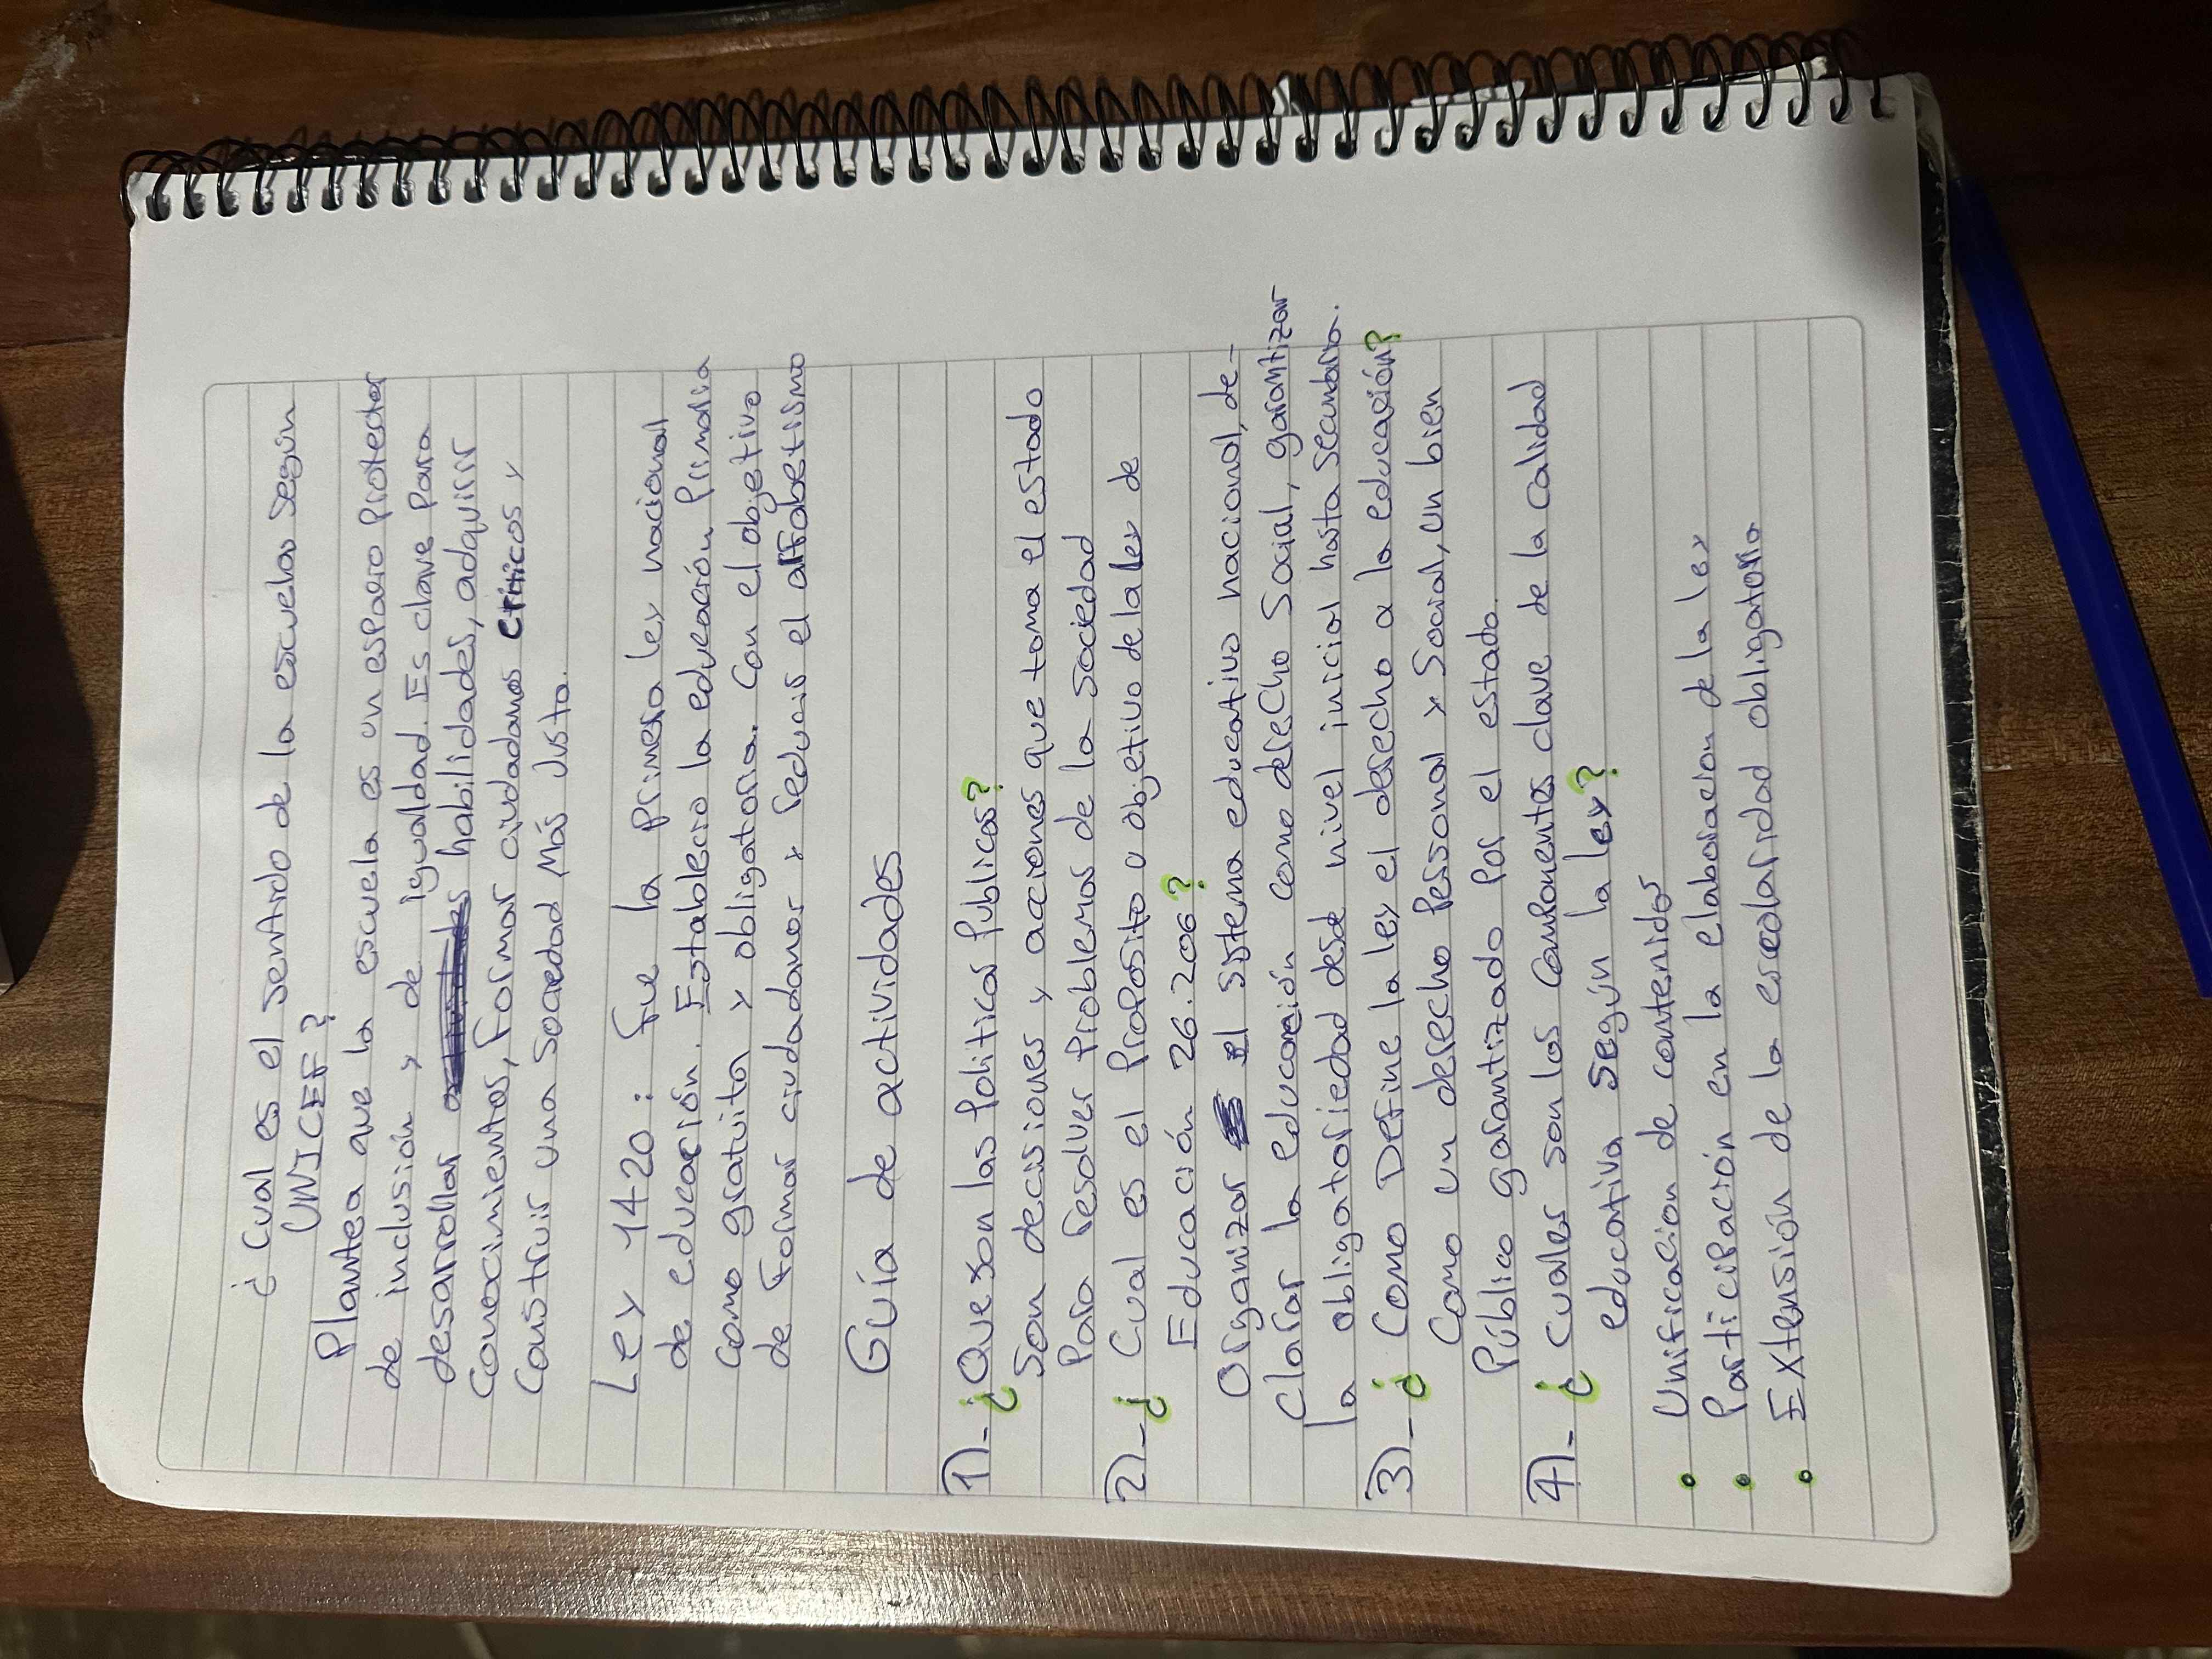 ¿ Cual es el sentido de la escuelas según
UNICEF?
Plantea que la escuela es un espacio protector
de inclusión y de igualdad. Es clave para
desarrollar habilidades, adquirir
conocimientos, formar ciudadanos criticos y
construir una sociedad más justa.
Ley 1420: fue la primera ley nacional
de educación. Establecio la educación primaria
como gratuita y obligatoria. Con el objetivo
de formar ciudadanos y reducir el alfabetismo
Guía de actividades
1)-¿Que son las politicas publicas?
Son decisiones y acciones que toma el estado
para resolver problemas de la sociedad
2)-¿ Cual es el proposito u objetivo de la ley de
Educación 26.206?
Organizar el sistema educativo nacional, de-
clarar la educación como derecho social, garantizar
la obligatoriedad desde nivel inicial hasta secundaria.
3)-¿ Como Define la ley el derecho a la educación?
Como un derecho personal y social, un bien
público garantizado por el estado.
4)-¿ Cuales son los componentes clave de la calidad
educativa según la ley?
• Unificacion de contenidos
• Participación en la elaboracion de la ley
• Extensión de la escolaridad obligatoria